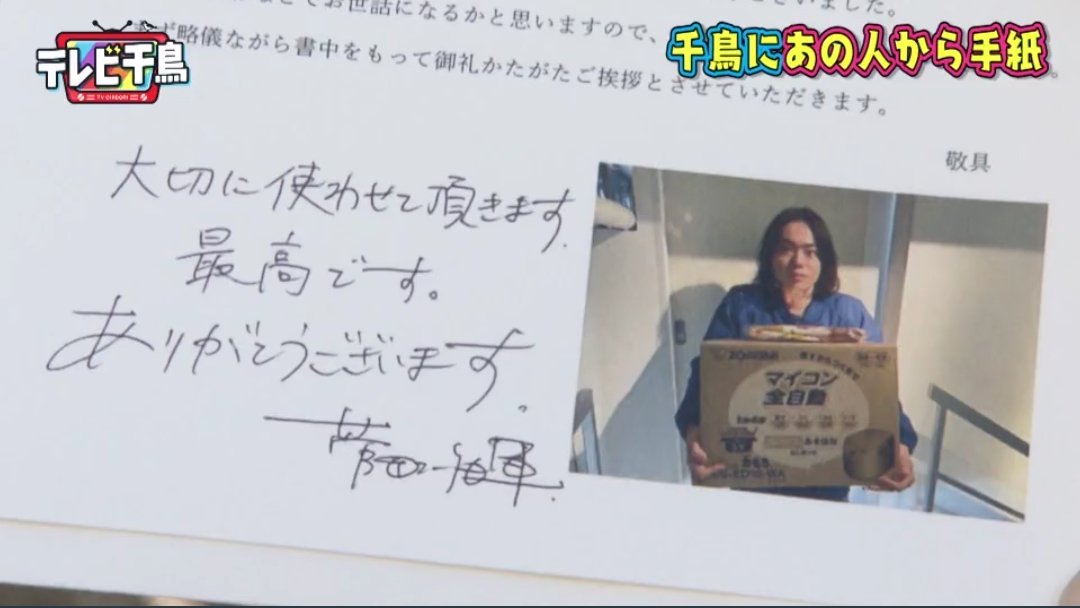 テレビ千鳥
TV CHIDORI
千鳥にあの人から手紙
お世話になるかと思いますので、
略儀ながら書中をもって御礼かたがたご挨拶とさせていただきます。
敬具
大切に使わせて頂きます.
最高です。
ありがとうございます.
菅田将暉.
ZOJIRUSHI
マイコン
全自動